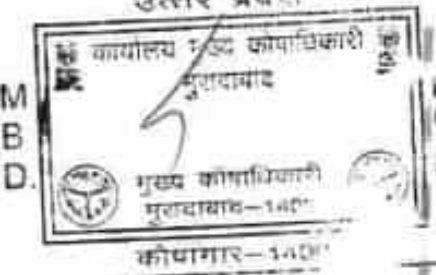 उत्तर प्रदेश
कार्यालय मुख्य कोषाधिकारी
मुरादाबाद
M
B
D.
मुख्य कोषाधिकारी
मुरादाबाद—1400
कोषागार—1400